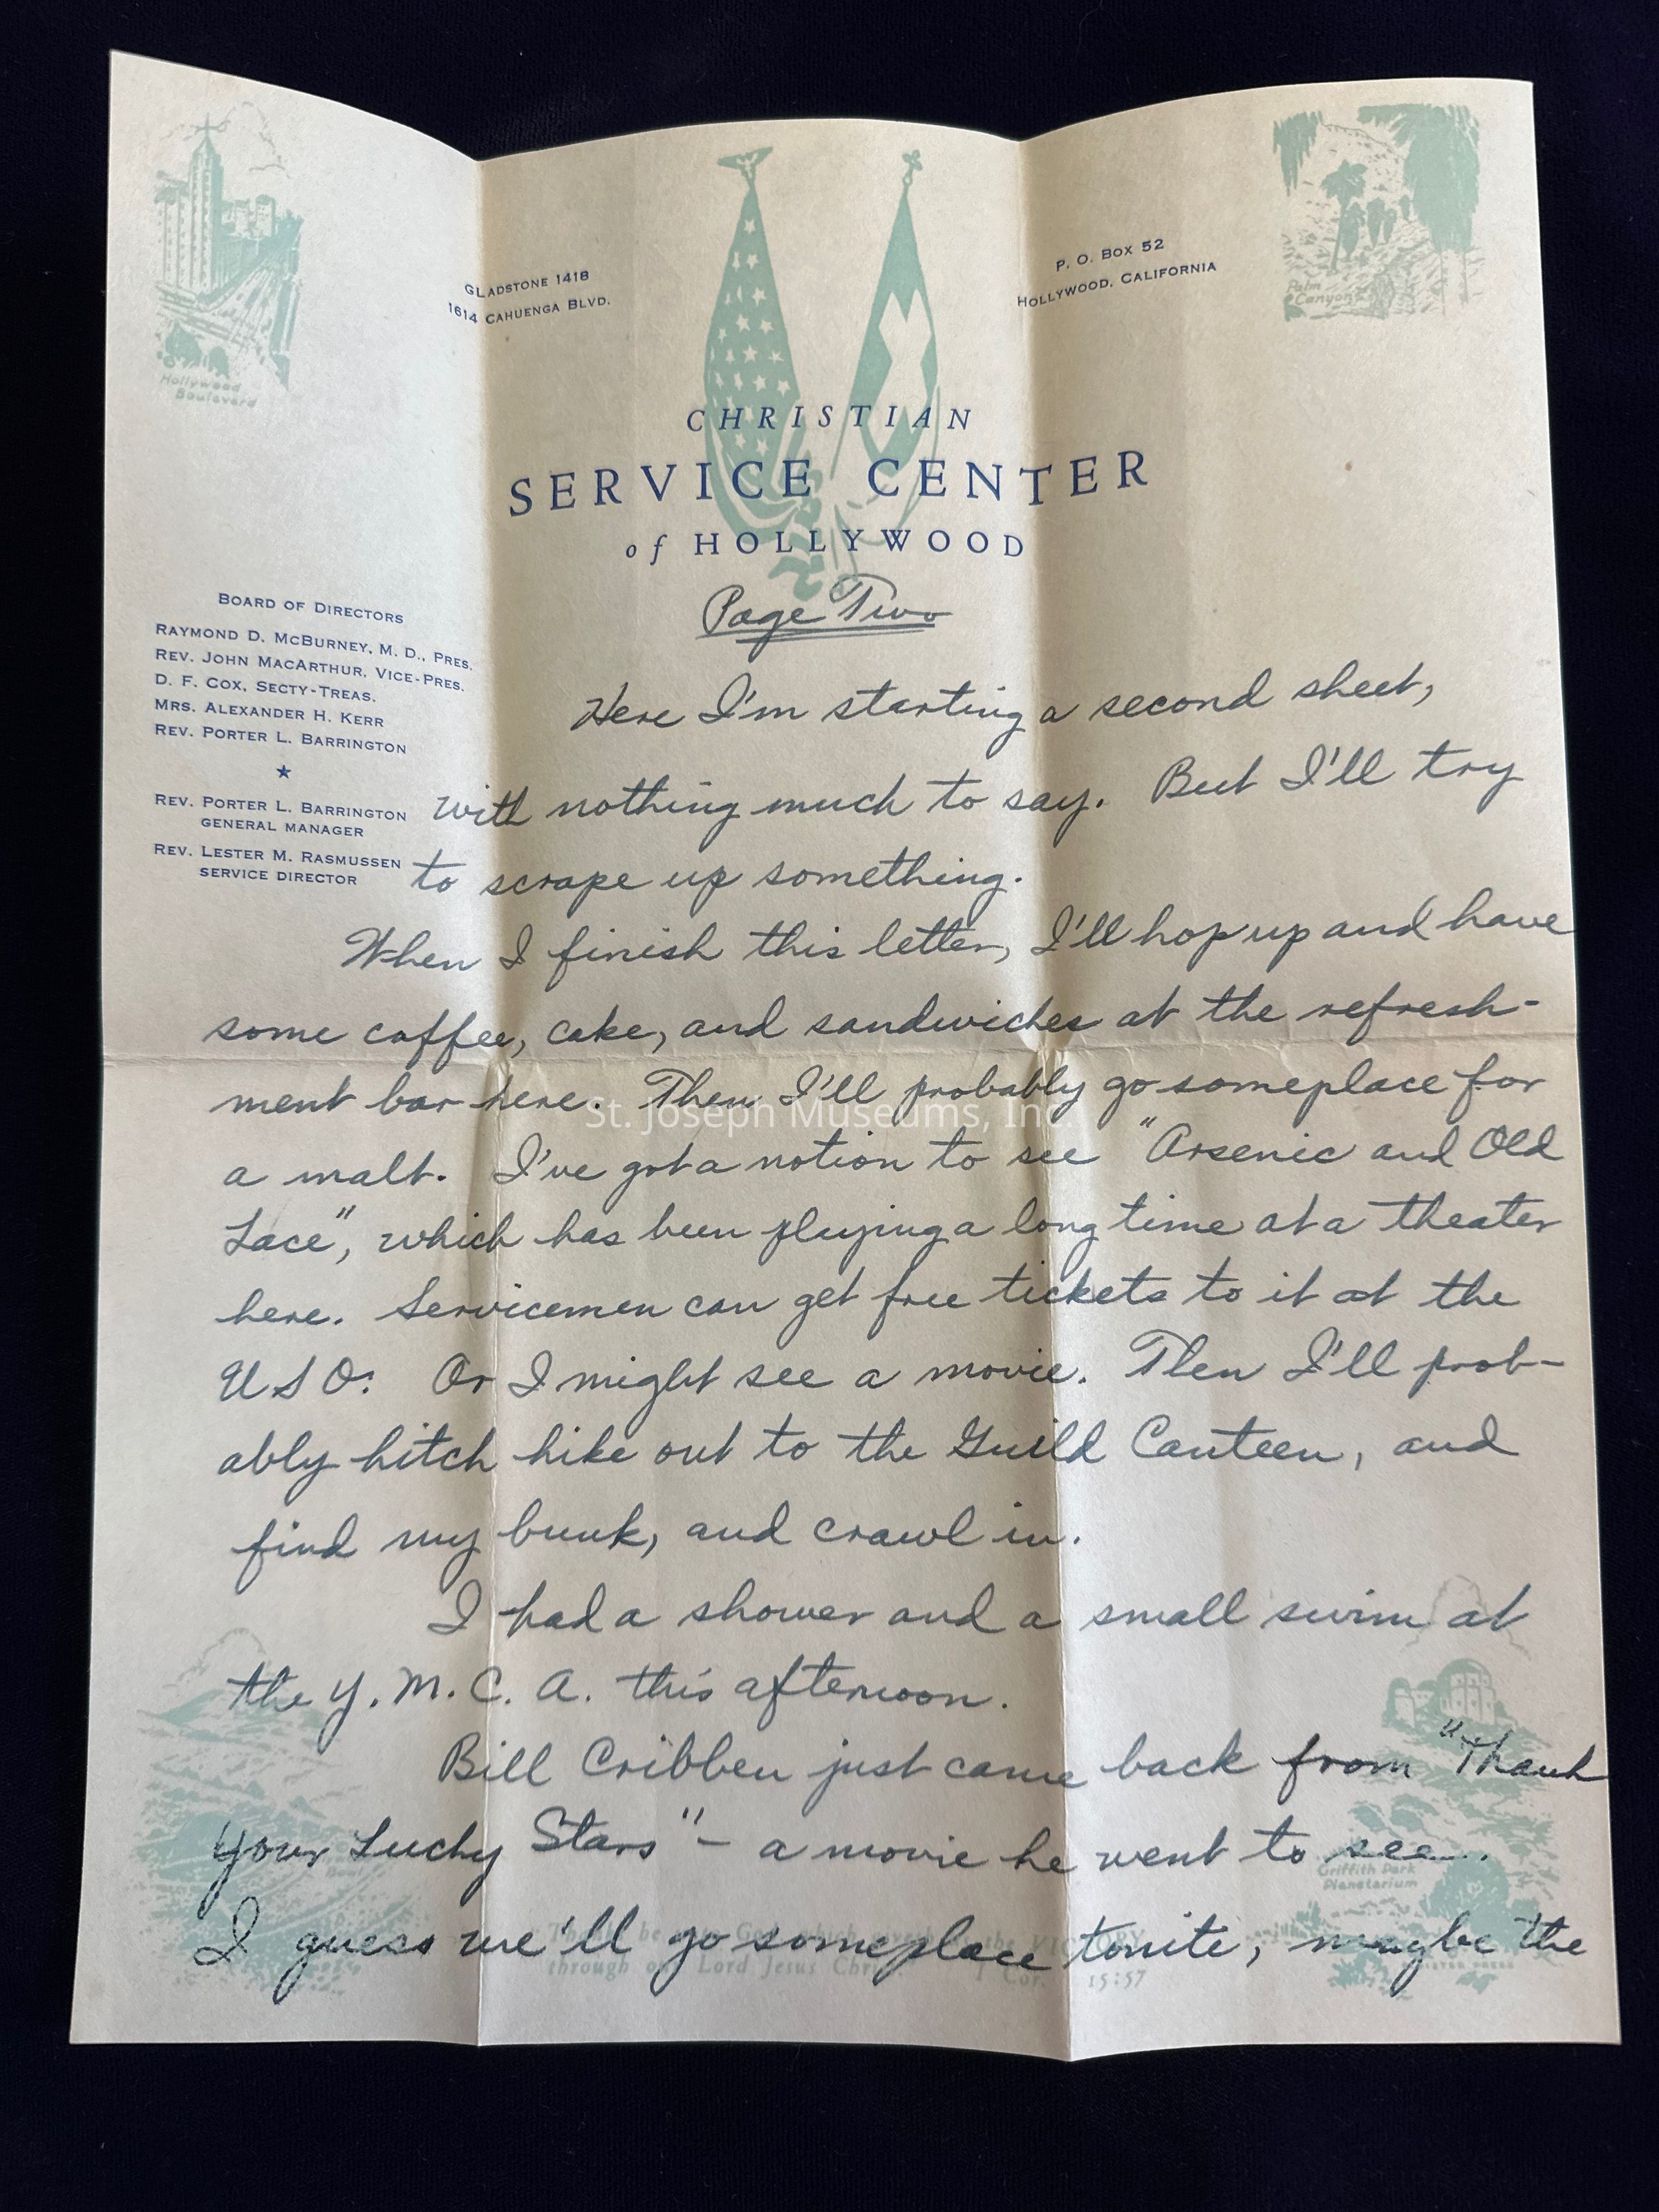 Hollywood
Boulevard
GLADSTONE 1418
1614 CAHUENGA BLVD.
P. O. BOX 52
HOLLYWOOD, CALIFORNIA
Palm
Canyon
CHRISTIAN
SERVICE CENTER
of HOLLYWOOD
Page Two
BOARD OF DIRECTORS
RAYMOND D. MCBURNEY, M. D., PRES.
REV. JOHN MACARTHUR, VICE-PRES.
D. F. COX, SECTY-TREAS.
MRS. ALEXANDER H. KERR
REV. PORTER L. BARRINGTON
REV. PORTER L. BARRINGTON
GENERAL MANAGER
REV. LESTER M. RASMUSSEN
SERVICE DIRECTOR
Here I'm starting a second sheet,
with nothing much to say. But I'll try
to scrape up something.
When I finish this letter, I'll hop up and have
some coffee, cake, and sandwiches at the refresh-
ment bar here. Then I'll probably go someplace for
St. Joseph Museums, Inc.
a malt. I've got a notion to see "Arsenic and Old
Lace", which has been playing a long time at a theater
here. Servicemen can get free tickets to it at the
USO. Or I might see a movie. Then I'll prob-
ably hitch hike out to the Guild Canteen, and
find my bunk, and crawl in.
I had a shower and a small swim at
the Y.M.C.A. this afternoon.
Bill Cribben just came back from "Thank
Your Lucky Stars" - a movie he went to see.
Griffith Park
Planetarium
I guess we'll go someplace tonite, maybe the
through our Lord Jesus Christ. I Cor. 15:57